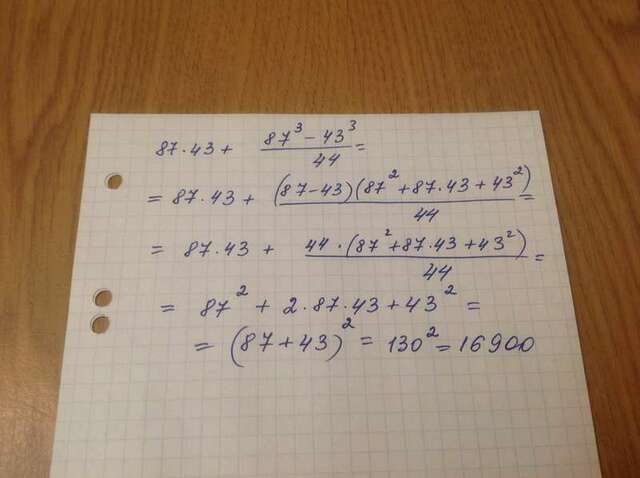 87·43 + (87³ − 43³)/44 =
= 87·43 + ((87−43)(87² + 87·43 + 43²))/44 =
= 87·43 + (44·(87² + 87·43 + 43²))/44 =
= 87² + 2·87·43 + 43² =
= (87 + 43)² = 130² = 16900